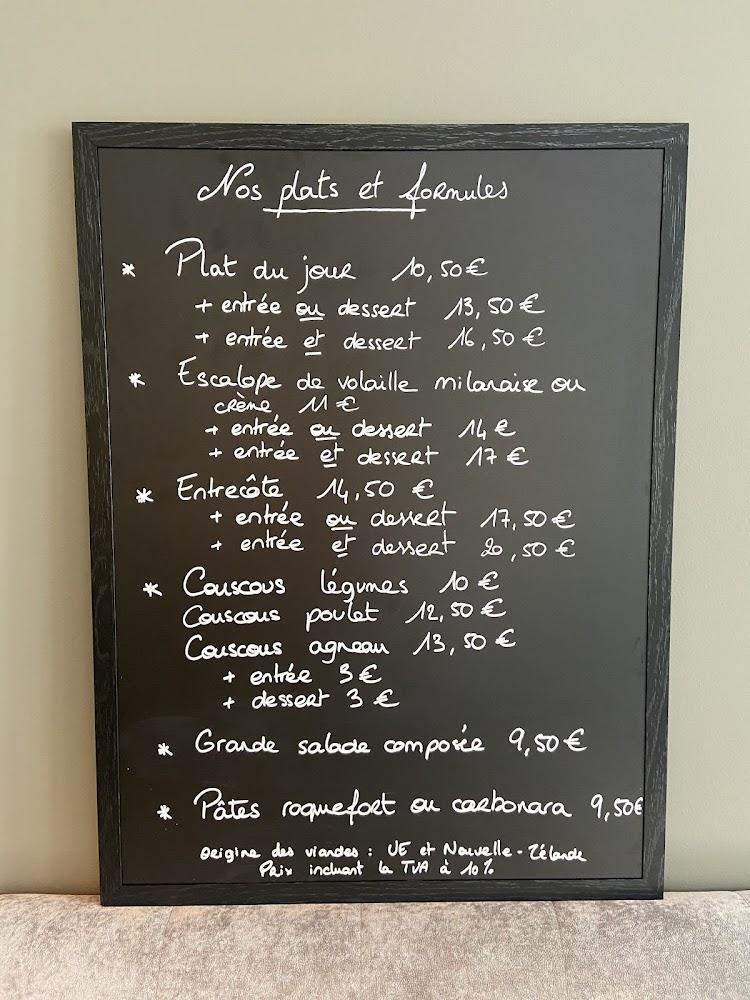 Nos plats et formules
* Plat du jour 10,50 €
+ entrée ou dessert 13,50 €
+ entrée et dessert 16,50 €
* Escalope de volaille milanaise ou
crème 11 €
+ entrée ou dessert 14 €
+ entrée et dessert 17 €
* Entrecôte 14,50 €
+ entrée ou dessert 17,50 €
+ entrée et dessert 20,50 €
* Couscous légumes 10 €
Couscous poulet 12,50 €
Couscous agneau 13,50 €
+ entrée 3 €
+ dessert 3 €
* Grande salade composée 9,50 €
* Pâtes roquefort ou carbonara 9,50€
Origine des viandes : UE et Nouvelle-Zélande
Prix incluant la TVA à 10%